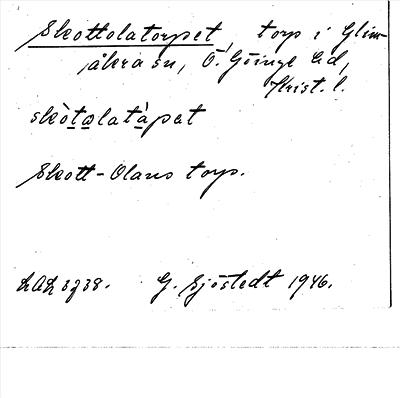 Skottolatorpet, torp i Glim-
åkra sn, Ö. Göinge hd,
Krist. l.
skòtolatàpet
Skott-Olaus torp.
G. Sjöstedt 1946.